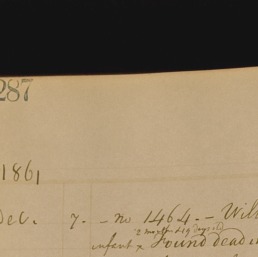 287
1861
Dec. 7. - no 1464. - Will
2 months & 19 days old
infant x Found dead i